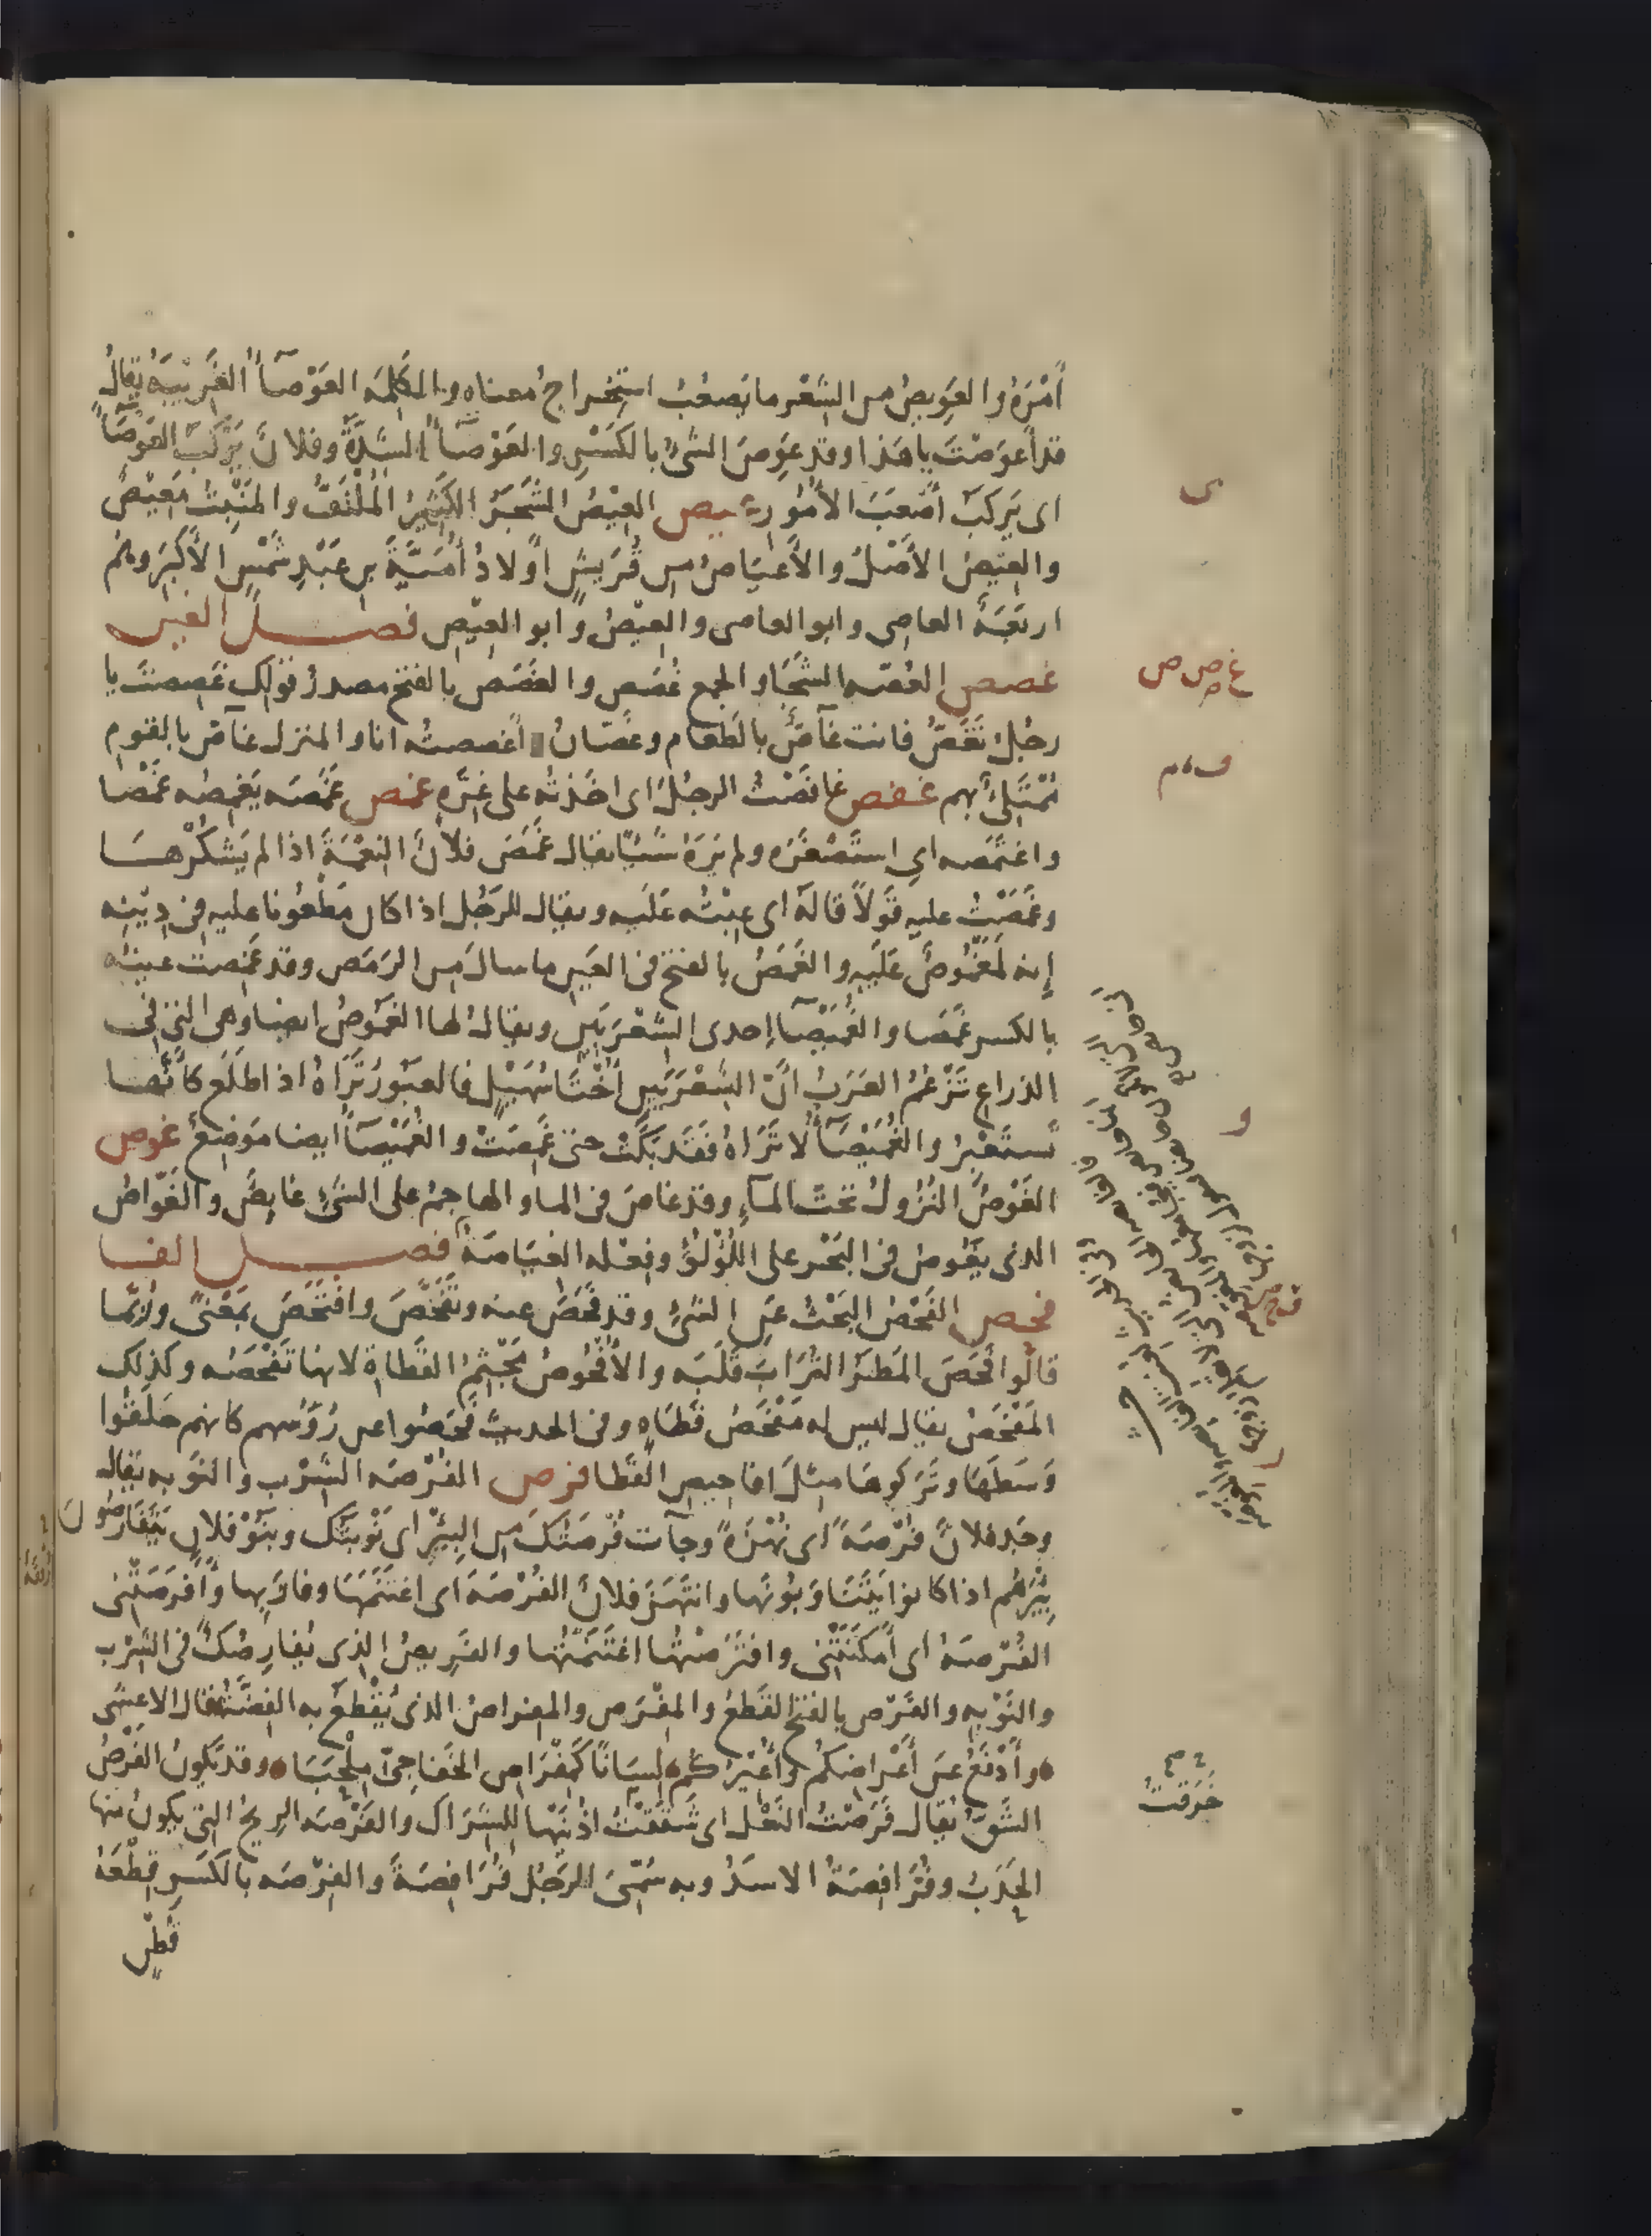 أَمْرَهُ والعَوِيصُ من الشِعْر ما يَصعُبُ استِخراجُ معناهِ والكَلِمَه العَوْصَآءُ الغَرِيْبَهُ يُقالُ
قد أَعوَصْتَ يا هَذا وقد عَوِصَ الشىُ بالكَسْرِ والعَوْصآءُ الشِدَّةُ وفلانٌ يَرْكَبُ العَوصَاءَ
اى يَركَبُ أَصْعَبَ الأمُورِ عيص العِيْصُ الشَجَرُ الكَثِيْرُ المُلْتَفُّ والمَنْبِتُ مَعِيْصٌ
والعِيْصُ الأَصْلُ والأَعْيَاصُ من قُرَيشٍ أَولادُ أُمَيَّةَ بنِ عَبْدِ شَمْسٍ الأَكْبَرِ وهُم
اربَعَةٌ العاصِى وابو العاصى والعِيْصُ وابو العِيْصِ فصــل الغين
غصص الغُصّه الشَجَا والجمع غُصَص والغَصَصُ بالفتح مصدرُ قولك غَصِصْتَ يا
رجُلُ تَغَصُّ فانت غاَصٌّ بالطَعام وغَصّانُ أَغصصتُه انا والمنزل غاَصٌّ بالقومِ
مُمْتَلِئٌ بهم غفص غافَصْتُ الرجُلَ اى اخَذتُه على غِرَّةٍ غمص غَمَصَه يَغمِصُه غَمْصًا
واغتَمَصه اى استَصْغَرَه ولم يَرَهُ شَيْئًا يقال غَمَصَ فلانٌ النِعْمَةَ اذا لم يَشكُرْهـا
وغَمَصْتُ عليه قَولاً قالَهُ اى عِبْتُه عَلَيه ويقال للرَجُل اذا كان مَطْعُونا عليه فى دِيْنِه
إنه لمَغْمُوصٌ عَلَيْهِ والغَمَصُ بالفتح فى العَينِ ما سالَ مِن الرَمَصِ وقد غَمِصت عينُه
بالكسر غَمَصا والغُمَيْصَآ إحدى الشِعْرَيَيْنِ ويقالُ لها الغَمُوصُ ايضا وهى التى فى
الذراعِ تَزْعُمُ العَرَبُ انّ الشِعْرَيَيْنِ أُخْتَا سُهَيْلٍ فالعَبورُ تَرَاهُ اذا طَلَعَ كأنّها
تَستَعْبِرُ والغُمَيْصَآءُ لا تَرَاهُ فقَد بَكَتْ حتى غَمِصَتْ والغُمَيْصَآءُ ايضا مَوضِعٌ غوص
الغَوْصُ النُزُولُ تحت المآءِ وقد غاصَ فى الما والهاجِمُ على الشىءِ غايِصٌ والغَوّاصُ
الذى يَغُوصُ فى البَحْر على اللُؤْلُؤِ وفِعْله الغِيَاصَةُ فصــل الفـا
فحص الفَحْصُ البَحْثُ عَنِ الشىءِ وقد فَحَصَ عنه وتَفَحَّصَ وافتَحَصَ بمَعْنًى ورُبَّما
قالوا فَحَصَ المَطَرُ التُرَابَ قَلَبَه والأُفْحُوصُ مَجْثِمُ القَطَاةِ لانها تَفْحَصُه وكذلك
المَفْحَصُ يقال ليس له مَفْحَصُ قَطَاهٍ وفى الحديث فَحَصُوا عن رُؤسهم كانهم حَلَقُوا
وَسَطَهَا وتَرَكوها مِثلَ افاحِيصِ القَطا فرص الفُرْصَه الشِرْب والنَوبه يقال
وجَد فلانٌ فُرْصَةً اى نُهْزَةً وجآت فُرصَتُكَ مِن البِئْرِ اى نَوْبَتُك وبَنُوْ فلانٍ يَتَفَارَصُونَ
بِئْرَهُم اذا كانوا يَتَنَاوَبُونَها وانتَهَزَ فلانٌ الفُرْصَةَ اى اغتَنَمَهَا وفازَ بِها وأَفرَصَتْنى
الفُرْصَهُ اى أَمكَنَتْنى وافتَرَصْتُها اغتَنَمْتُها والفَرِيصُ الذى يُفارِصُكَ فى الشِرْب
والنَوْبِه والفَرْص بالفتح القَطعُ والمِفْرَص والمِفراصُ الذى يُقْطَعُ به الفِضّةُ قال الاعشى
وأَدْفَعُ عَن أَعْراضِكُم وأُعِيْرُكُم لِسَانًا كَمِفْرَاصِ الخَفاجِىّ مِلْحَبَا وقد يَكونُ الفَرْصُ
الشَقَّ يُقال فَرَصْتُ النَعْلَ اى شَقَقْتُ أُذُنَيْها للشِرَاك والفَرْصَه الرِيحُ التى يكونُ منها
الحَدَبُ وفُرَافِصَةُ الاسَدُ وبه سُمِّىَ الرَجُل فُرَافِصَةَ والفِرْصَه بالكَسْرِ قِطْعَهُ
قُطْنٍ
ى
غ ص ص
و
خَرَقتُ